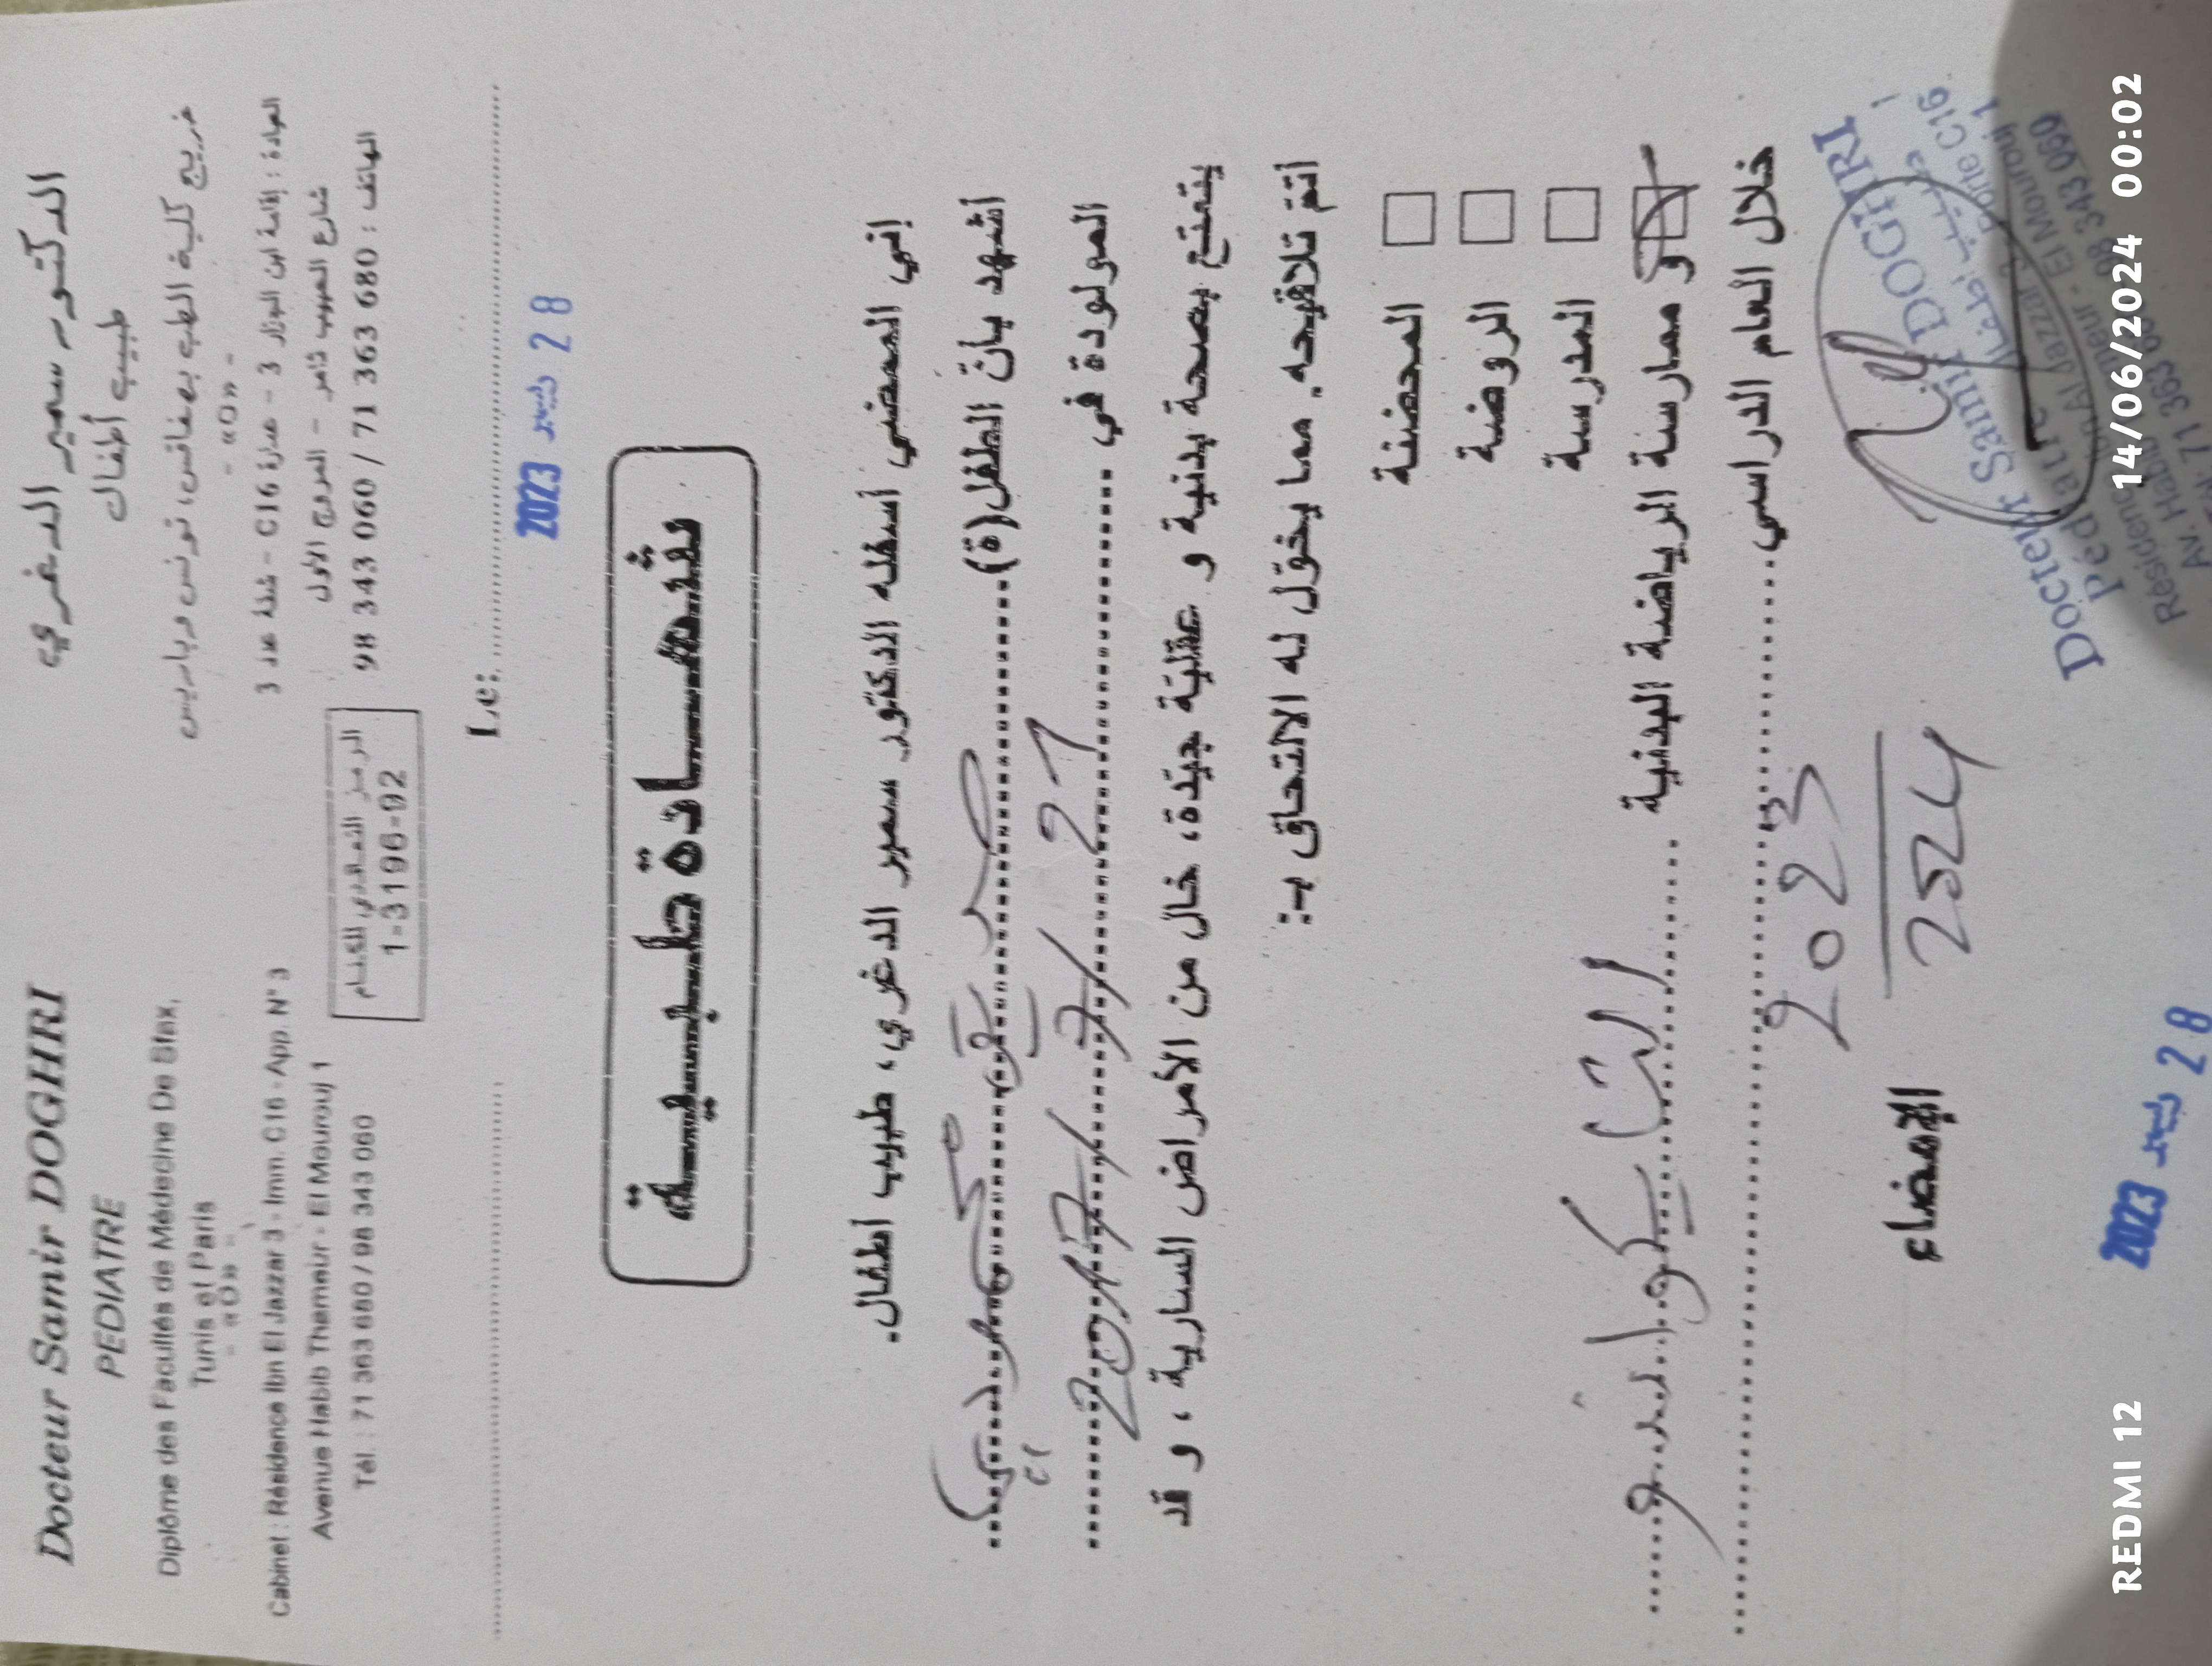 Docteur Samir DOGHRI
PEDIATRE
Diplôme des Facultés de Médecine De Sfax,
Tunis et Paris
- «O» -
Cabinet : Résidence Ibn El Jazzar 3 - Imm. C16 - App. N° 3
Avenue Habib Thameur - El Mourouj 1
Tél. : 71 363 680 / 98 343 060
الدكتور سمير الدغري
طبيب أطفال
خريج كلية الطب بصفاقس، تونس وباريس
- «O» -
العيادة : إقامة ابن الجزار 3 - عمارة C16 - شقة عدد 3
شارع الحبيب ثامر - المروج الأول
الهاتف : 98 343 060 / 71 363 680
الرمز التعاقدي للكنام
1-3196-92
Le:
28 ديسمبر 2023
شهادة طبية
إني الممضي أسفله الدكتور سمير الدغري، طبيب أطفال.
أشهد بأن الطفل(ة)
المولودة في 21
يتمتع بصحة بدنية و عقلية جيّدة، خال من الأمراض السارية ، و قد
أتمّ تلاقيحه. مما يخوّل له الالتحاق بـ:
المحضنة
الروضة
المدرسة
و ممارسة الرياضة البدنية
خلال العام الدراسي 2023
2024
الإمضاء
Docteur Samir DOGHRI
طبيب أطفال
Pédiatre
Av. Habib Thameur - El Mourouj 1
28 ديسمبر 2023
REDMI 12
14/06/2024 00:02